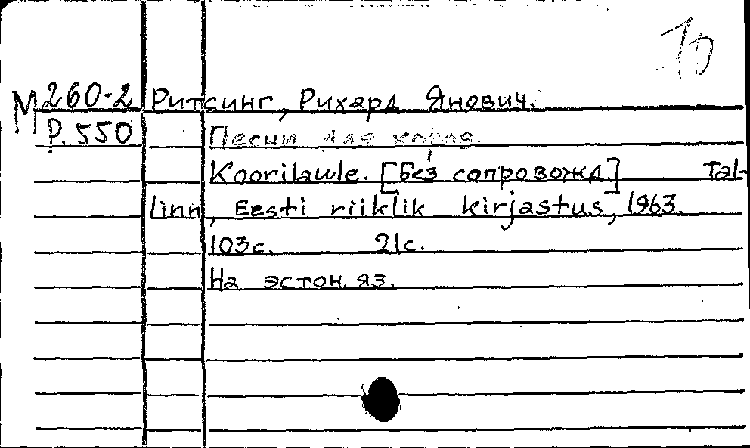 10
М 260-2 Ритсинг, Рихард Янович.
Р. 550 Песни для хора.
Koorilaule. [Без сопровожд] Tal-
linn, Eesti riiklik kirjastus, 1963.
103с. 21с.
На эстон. яз.